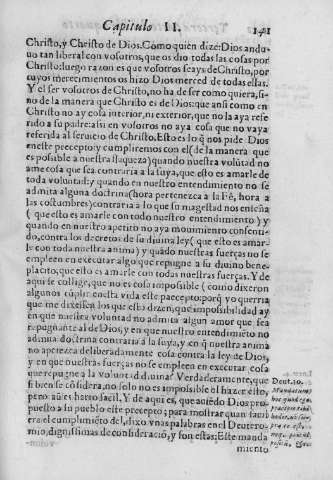 Capitulo II. 141
Christo, y Christo de Dios. Como quien dize: Dios andu-
uo tan liberal con vosotros, que os dio todas las cosas por
Christo: luego razon es que vosotros seays de Christo, por
cuyos merecimientos os hizo Dios merced de todas ellas.
Y el ser vosotros de Christo, no ha de ser como quiera, si-
no de la manera que Christo es de Dios: que ansi como en
Christo no ay cosa interior, ni exterior, que no la aya refe
rido a su padre: assi en vosotros no aya cosa que no vaya
referida al seruicio de Christo. Esto es lo q̃ nos pide Dios
en este precepto: y cumpliremos con el (de la manera que
es possible a nuestra flaqueza) quando nuestra volũtad no
ame cosa que sea contraria a la suya, que esto es amarle de
toda voluntad: y quando en nuestro entendimiento no se
admita alguna doctrina (hora pertenezca a la Fè, hora a
las costumbres) contraria a lo que su magestad nos enseña
( que esto es amarle con todo nuestro entendimiento ) y
quando en nuestro apetito no aya mouimiento consenti-
do, contra los decretos de su diuina ley ( que esto es amar-
le con toda nuestra anima) y quãdo nuestras fuerças no se
empleen en executar algo que repugne a su diuino bene-
placito, que esto es amarle con todas nuestras fuerças. Y de
aqui se collige, que no es cosa impossible ( como dixeron
algunos cũplir en esta vida este precepto: porq̃ yo querria
que me dixessen los que esto dizen, que impossibilidad ay
en que nuestra voluntad no admita algun amor que sea
repugnante al de Dios, y en que nuestro entendimiẽto no
admita doctrina contraria a la suya, y en q̃ nuestra anima
no apetezca deliberadamente cosa contra la ley de Dios,
y en que nuestras fuerças no se empleen en executar cosa
que repugne a la volũtad diuina? Verdaderamente, que
si bien se cõsidera, no solo no es impossible el hazer esto,
pero aũ es harto facil. Y de aqui es, que auiẽdo Dios pro-
puesto a su pueblo este precepto; para mostrar quan facil
era el cumplimiẽto del, dixo vnas palabras en el Deutero-
mio, dignissimas de consideració, y son estas: Este manda
miento
Deut. 30.